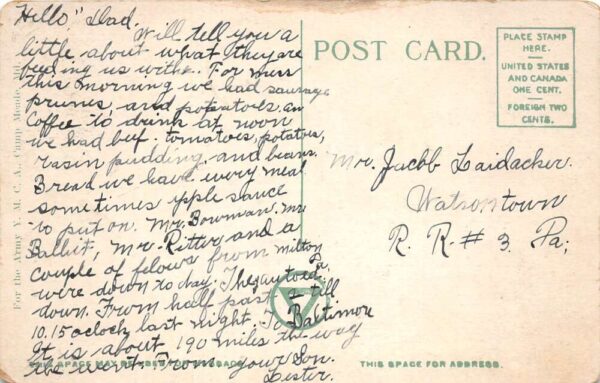 Hello" Dad.
Will tell you a
little about what they are
feeding us withe. For mess
this morning we had sausage
prunes, and potatoes, an
Coffee to drink at noon
we had beef. tomatoes, potatoes,
rasin pudding. and beans.
Bread we have every meal
sometimes apple sauce
to put on. Mr. Bowman. Mr
Balliet, Mr. Ritter and a
couple of felows from Milton
Pa.
were down to day, They autoed
down. From half past 2 till
10.15 oclock last night. To Baltimore
It is about 190 miles the way
we went. From your Son.
Lester.
For the Army Y. M. C. A., Camp Meade, Md.
POST CARD.
PLACE STAMP
HERE.
UNITED STATES
AND CANADA
ONE CENT.
FOREIGN TWO
CENTS.
Mr. Jacob Laidacker.
Watsontown
R. R. # 3. Pa;
THIS SPACE MAY BE USED FOR MESSAGE.
THIS SPACE FOR ADDRESS.